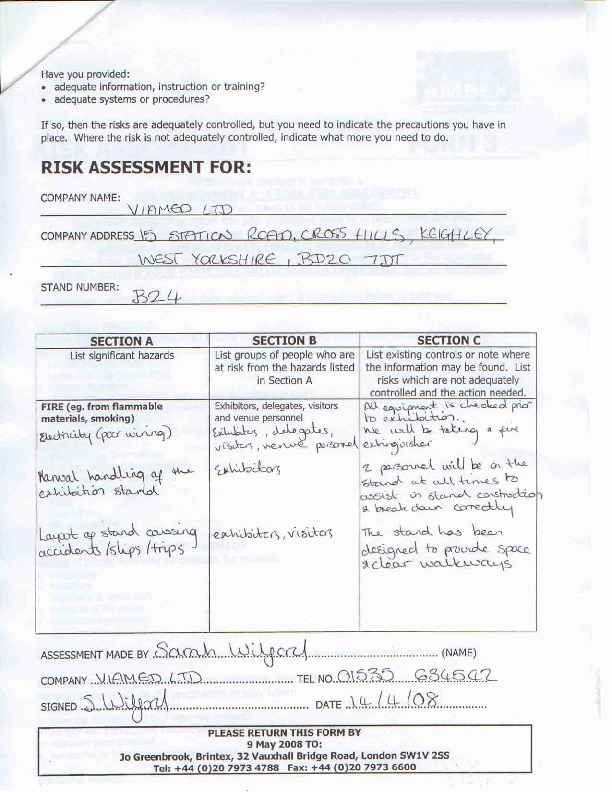 Have you provided:
• adequate information, instruction or training?
• adequate systems or procedures?
If so, then the risks are adequately controlled, but you need to indicate the precautions you have in
place. Where the risk is not adequately controlled, indicate what more you need to do.
RISK ASSESSMENT FOR:
COMPANY NAME:
VIAMED LTD
COMPANY ADDRESS 15 STATION ROAD, CROSS HILLS, KEIGHLEY,
WEST YORKSHIRE, BD20 7DT
STAND NUMBER:
B24
SECTION A
List significant hazards
SECTION B
List groups of people who are
at risk from the hazards listed
in Section A
SECTION C
List existing controls or note where
the information may be found. List
risks which are not adequately
controlled and the action needed.
FIRE (eg. from flammable
materials, smoking)
Electricity (poor wiring)
Exhibitors, delegates, visitors
and venue personnel
Exhibitors, delegates,
visitors, venue personel
All equipment is checked prior
to exhibition.
We will be taking a fire
extinguisher
Manual handling of the
exhibition stand
Exhibitors
2 personnel will be on the
stand at all times to
assist in stand construction
& break down correctly
Layout of stand causing
accidents/slips/trips
exhibitors, visitors
The stand has been
designed to provide space
& clear walkways
ASSESSMENT MADE BY Sarah Wilford (NAME)
COMPANY VIAMED LTD TEL NO. 01535 634542
SIGNED S. Wilford DATE 14/4/08
PLEASE RETURN THIS FORM BY
9 May 2008 TO:
Jo Greenbrook, Brintex, 32 Vauxhall Bridge Road, London SW1V 2SS
Tel: +44 (0)20 7973 4788 Fax: +44 (0)20 7973 6600